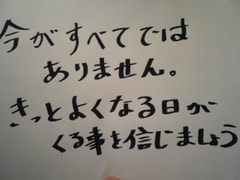 今がすべてでは
ありません。
きっとよくなる日が
くる事を信じましょう